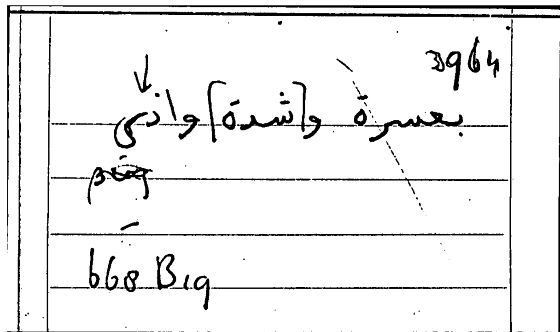 3964
بعسرة و[شدة] واذى
668 B19